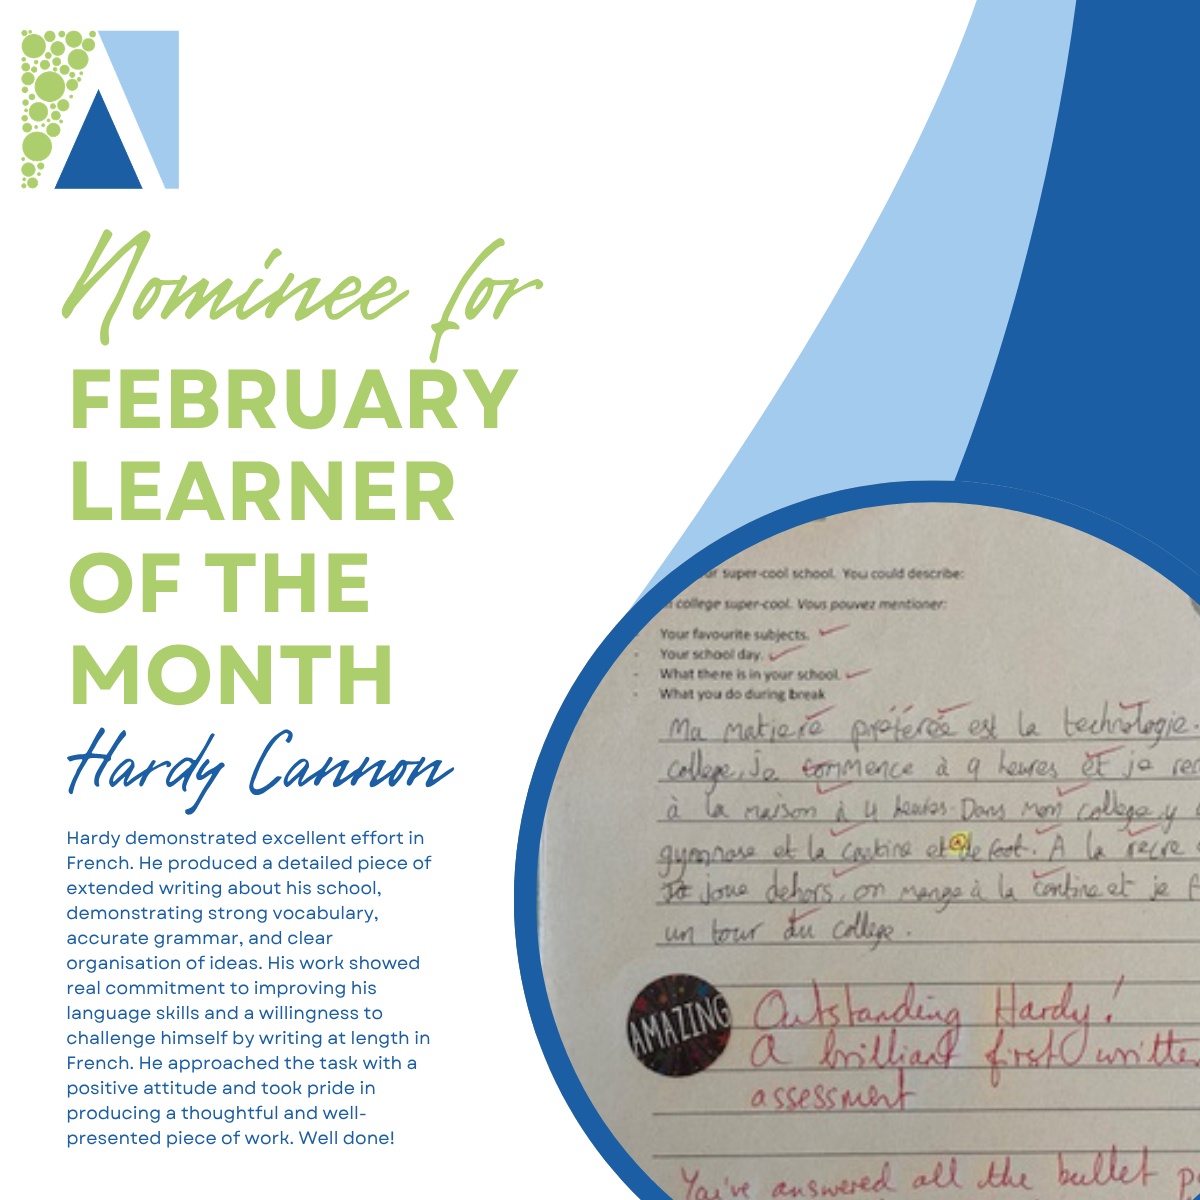 Nominee for
FEBRUARY
LEARNER
OF THE
MONTH
Hardy Cannon
Hardy demonstrated excellent effort in
French. He produced a detailed piece of
extended writing about his school,
demonstrating strong vocabulary,
accurate grammar, and clear
organisation of ideas. His work showed
real commitment to improving his
language skills and a willingness to
challenge himself by writing at length in
French. He approached the task with a
positive attitude and took pride in
producing a thoughtful and well-
presented piece of work. Well done!
super-cool school. You could describe:
college super-cool. Vous pouvez mentioner:
- Your favourite subjects.
- Your school day.
- What there is in your school.
- What you do during break
Ma matiere préférée est la technologie.
college, Je commence à 9 heures et je
à la maison à 4 heures. Dans mon college y
gymnase et la cantine et le foot. A la recre
Je joue dehors, on mange à la cantine et je
un tour du college.
AMAZING
Outstanding Hardy!
A brilliant first
assessment
You've answered all the bullet